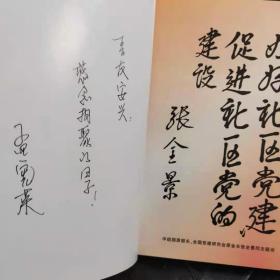 友安兴：
怀念相聚的日子！
社区党建
促进社区党的
建设
張全景
中组部原部长、全国党建研究会原会长张全景同志题词